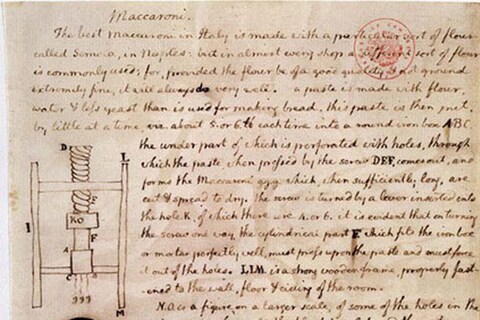 Maccaroni.
The best Maccaroni in Italy is made with a particular sort of flour
called Semola, in Naples: but in almost every shop a different sort of flour
is commonly used; for, provided the flour be of a good quality & not ground
extremely fine, it will always do very well. a paste is made with flour,
water & less yeast than is used for making bread. this paste is then put,
by little at a time, viz. about 5. or 6. lb each time into a round iron box ABC.
the under part of which is perforated with holes, through
which the paste, when pressed by the screw DEF, comes out, and
forms the Maccaroni g.g.g. which, when sufficiently long, are
cut & spread to dry. the screw is turned by a lever inserted into
the hole K, of which there are 4. or 6. it is evident that on turning
the screw one way, the cylindrical part F. which fits the iron box
or mortar perfectly well, must press upon the paste and must force
it out of the holes. LLM. is a strong wooden frame, properly fast-
ened to the wall, floor & cieling of the room.
N.O. is a figure, on a larger scale, of some of the holes in the
D
L
I
KO
E
F
A
B
C
M